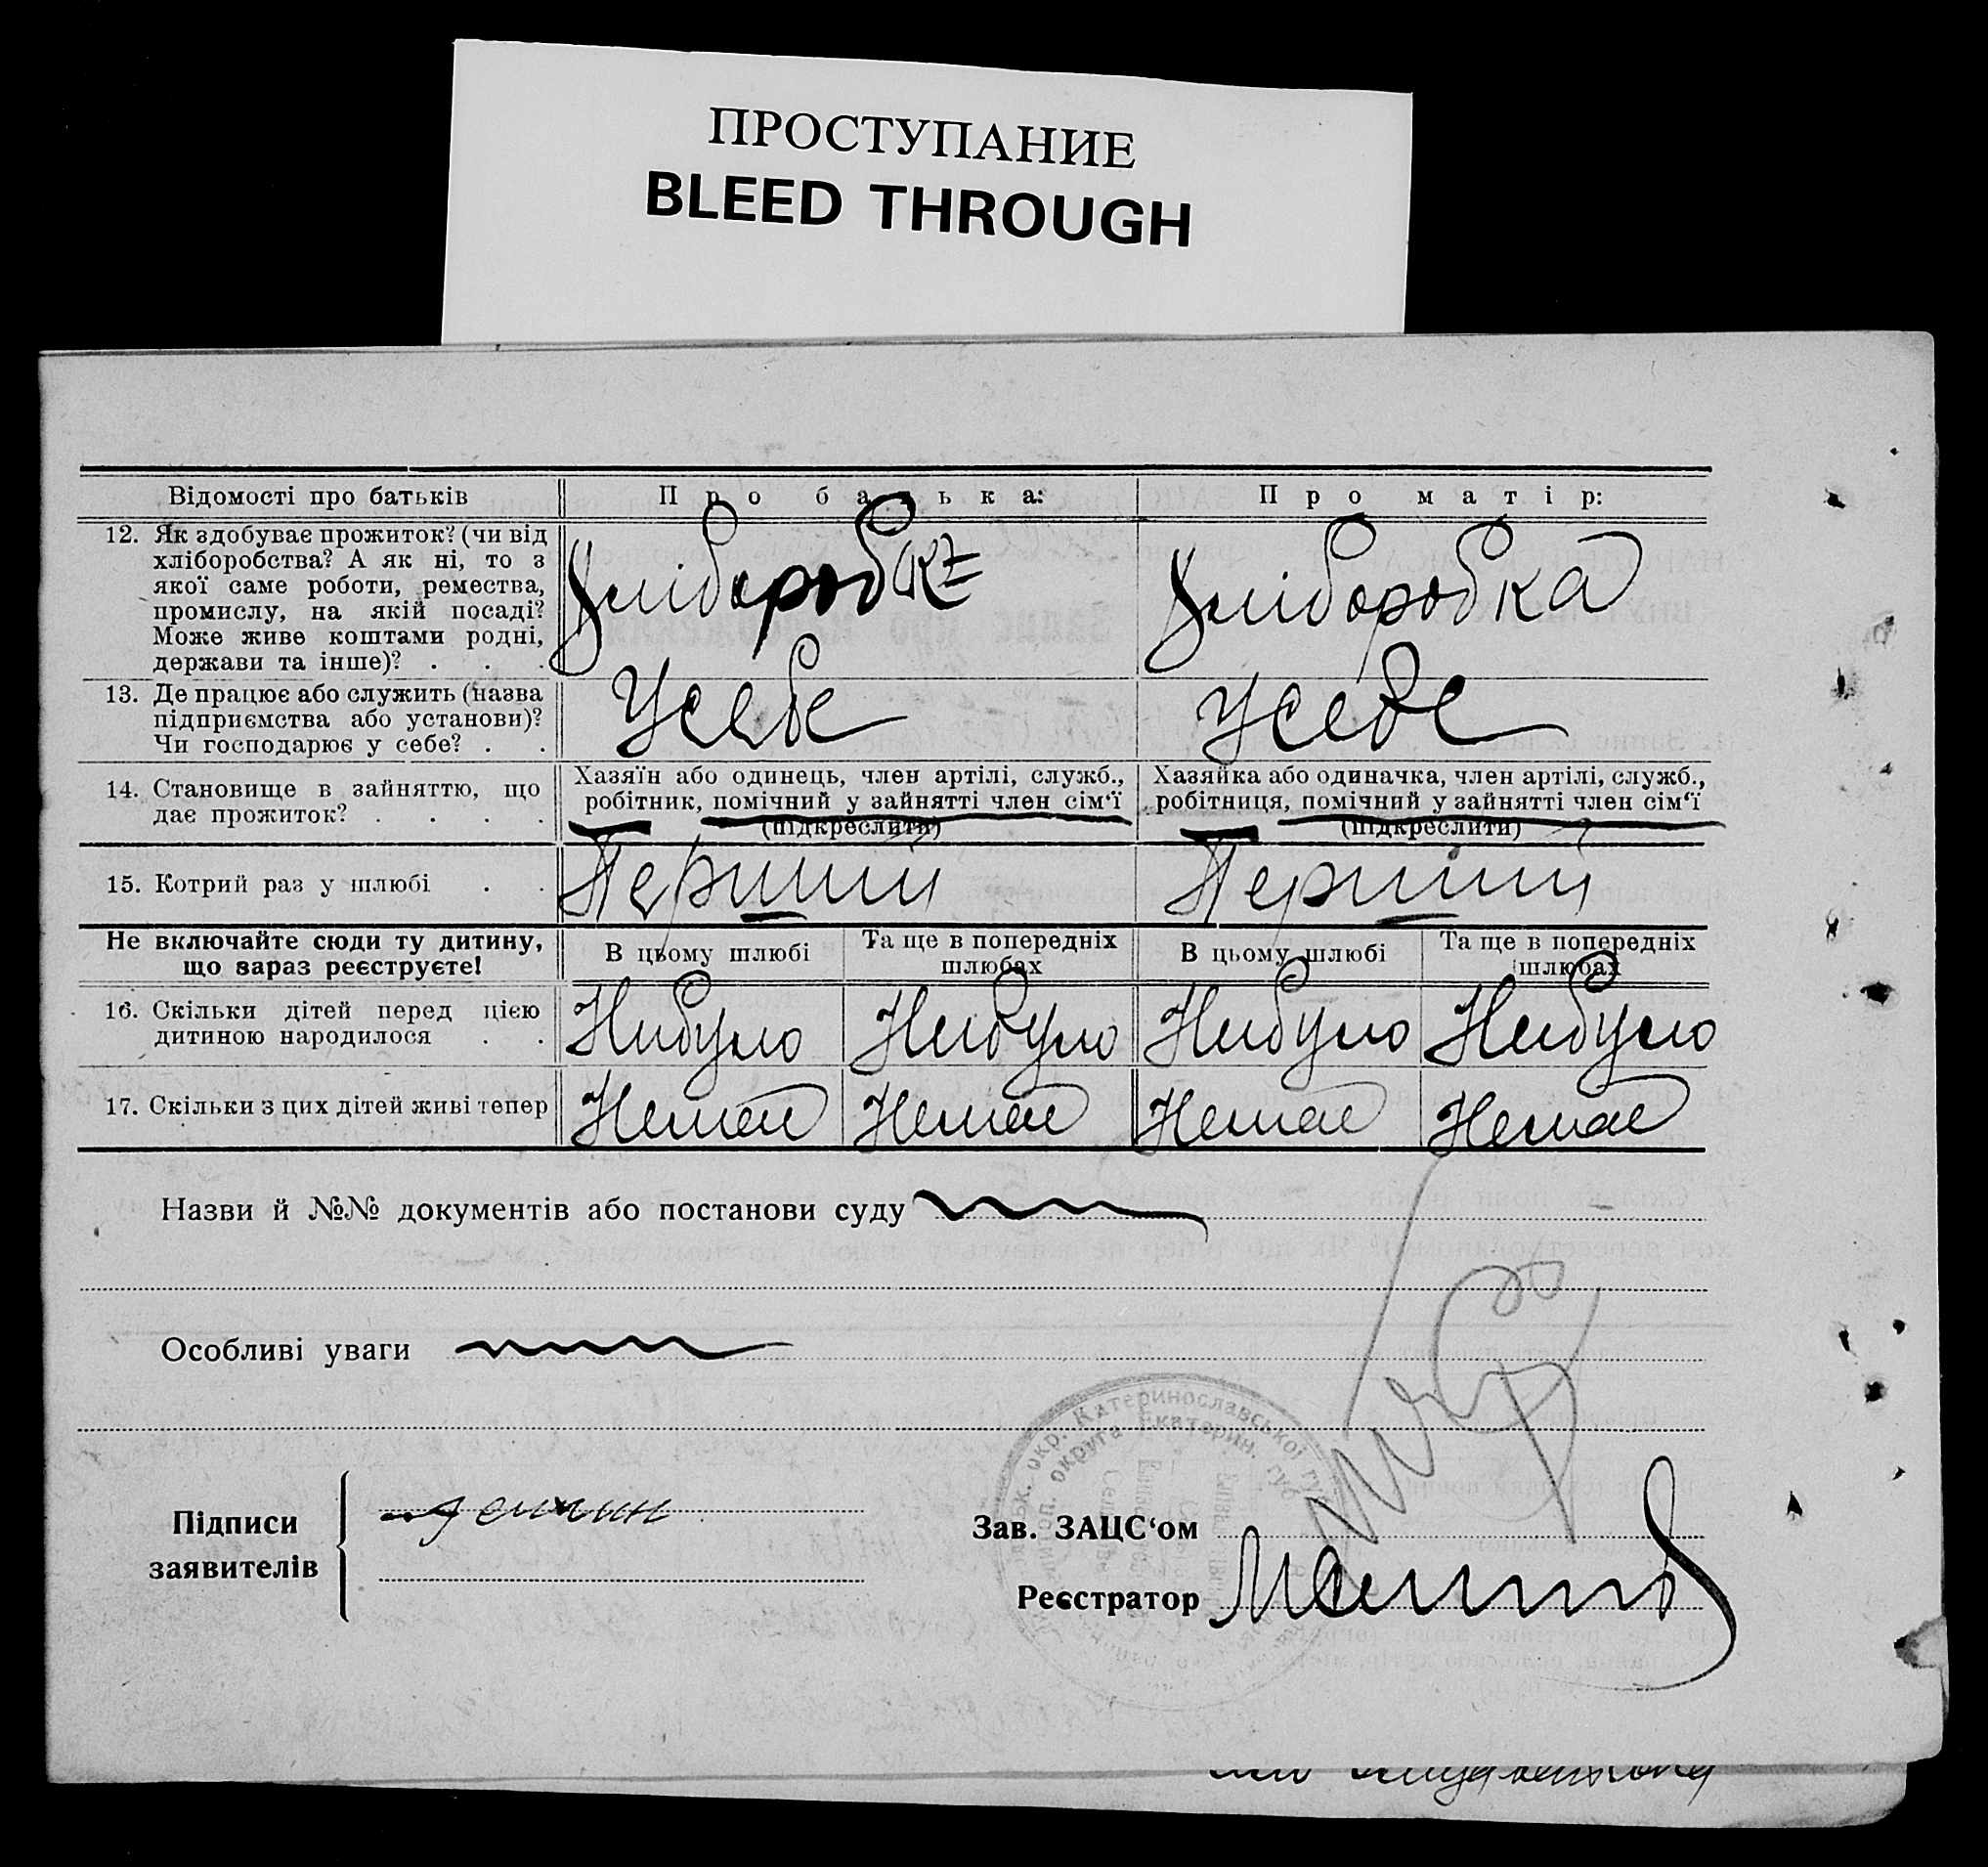 ПРОСТУПАНИЕ
BLEED THROUGH
Відомості про батьків
Про батька:
Про матір:
12. Як здобуває прожиток? (чи від
хліборобства? А як ні, то з
якої саме роботи, ремества,
промислу, на якій посаді?
Може живе коштами родні,
держави та інше)? . . .
Хліборобка
Хліборобка
13. Де працює або служить (назва
підприємства або установи)?
Чи господарює у себе? . .
Усебе
Усебе
14. Становище в зайняттю, що
дає прожиток? . . . .
Хазяїн або одинець, член артілі, служб.,
робітник, помічний у зайнятті член сім'ї
(підкреслити)
Хазяйка або одиначка, член артілі, служб.,
робітниця, помічний у зайнятті член сім'ї
(підкреслити)
15. Котрий раз у шлюбі . .
Перший
Перший
Не включайте сюди ту дитину,
що зараз реєструєте!
В цьому шлюбі
Та ще в попередніх
шлюбах
В цьому шлюбі
Та ще в попередніх
шлюбах
16. Скільки дітей перед цією
дитиною народилося . .
Нибуло
Нибуло
Нибуло
Нибуло
17. Скільки з цих дітей живі тепер
Немає
Немає
Немає
Немає
Назви й №№ документів або постанови суду
Особливі уваги
Підписи
заявителів
Зав. ЗАЦС'ом
Реєстратор
окр. Катеринославської губ
округа Екатерин. губ